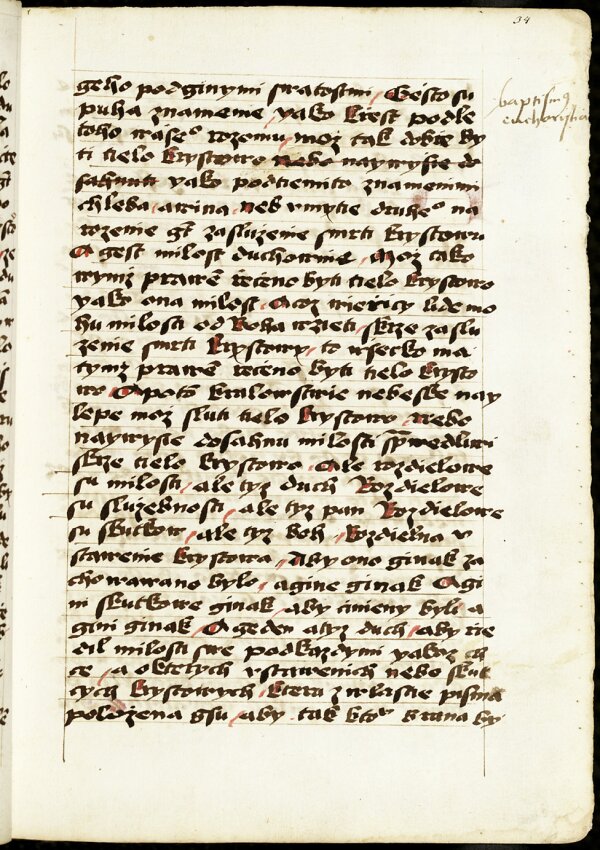 34
baptismus
eucharistia
geho pod ginymi swatostmi / Gesto su
puha znamenie yako krest podle
toho naseº rozumu moz tak dobre by
ti tielo krystowo nebo naywysie do
sahnuti yako pod tiemito znamenimi
chleba a wina neb vmytie druheº na
rozenie gt zasluzenie smrti krystowi
A gest milost duchownie / Moz tako
wymz prawē receno byti tielo krystowo
yako ona milost / A coz wierzicy lide mo
hu milosti od boha wzieti / skrze zaslu
zenie smrti krystowy / to wsecko ma
tymz prawē receno byti tielo krysto
wo / A potō kralowstwie nebeske nay
lepe moz sluti tielo krystowo / nebo
naywysie dosahnu milosti spwedliwi
skrze tielo krystowo / Ale rozdielowe
su milosti / ale tyz duch / Rozdielowe
su sluzebnosti / ale tyz pan Rozdielowe
su skutkow / ale tyz boh / Rozdielna v
stawenie krystowa / Aby ono ginak za
chowawano bylo / a gine ginak A gi
ni skutkowe ginak / aby cinieny byli a
gini ginak / A geden a tyz duch / aby tie
dil milosti swe podkazdymi yakoz ch
ce / a o kterych vstawenich nebo skut
cych krystowych / ktera zwlastie pisma
polozena gsu / aby tak ktoz brana by